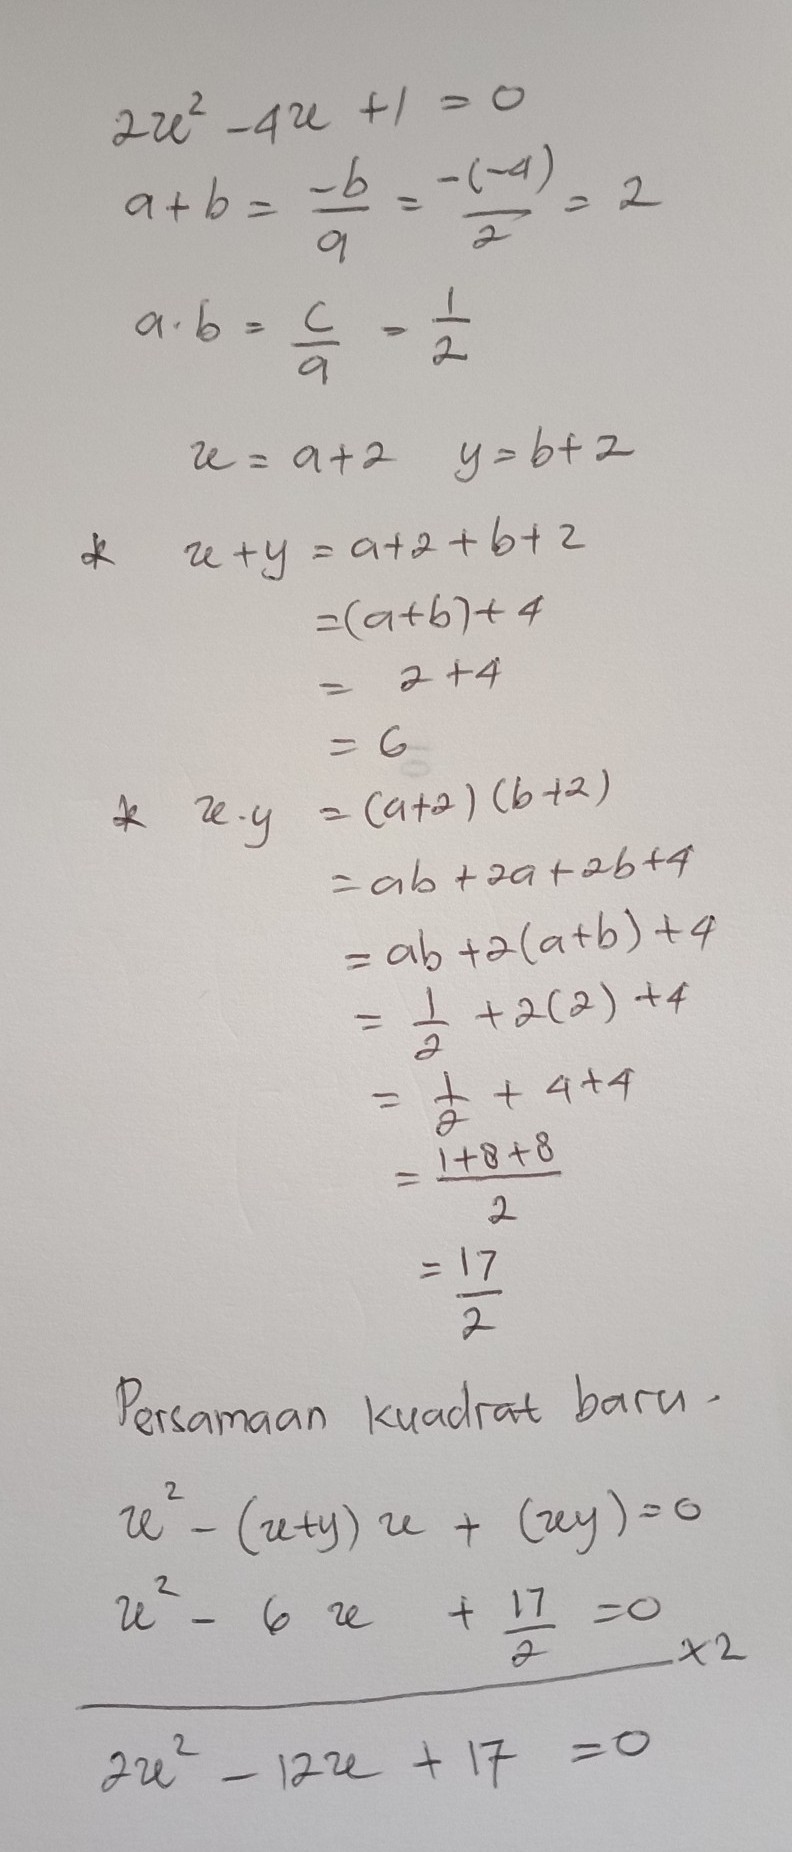 2x² - 4x + 1 = 0
a + b = -b/a = -(-4)/2 = 2
a . b = c/a = 1/2
x = a+2 y = b+2
* x + y = a+2 + b+2
= (a+b) + 4
= 2 + 4
= 6
* x.y = (a+2) (b+2)
= ab + 2a + 2b + 4
= ab + 2(a+b) + 4
= 1/2 + 2(2) + 4
= 1/2 + 4 + 4
= 1+8+8/2
= 17/2
Persamaan kuadrat baru.
x² - (x+y) x + (xy) = 0
x² - 6 x + 17/2 = 0
x2
2x² - 12x + 17 = 0